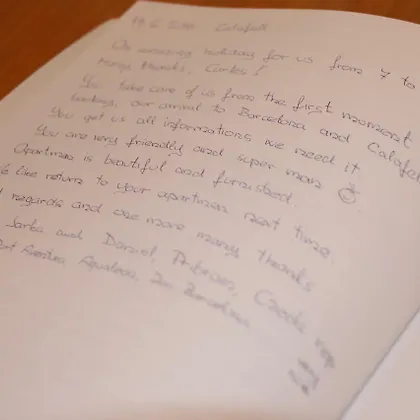 Calafell
An amazing holiday for us from 7 to
Many thanks, Carlos!
You take care of us from the first moment
bookings, our arrival to Barcelona and Calafell
You get us all informations we need it
You are very friendly and super man ☺
Apartman is beautiful and furnished.
like return to your apartman next time.
regards and one more many thanks
Sarka and Daniel Czech rep
Port Aventura, Aqualeon, Zoo Barcelona